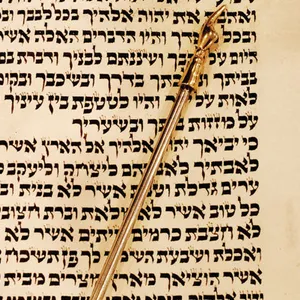 ואהבת את יהוה אלהיך בכל לבבך
והיו הדברים האלה אשר
היום על לבבך ושננתם לבניך ודברת בם
בביתך בדרך ובשכבך ובקומך
על והיו לטטפת בין עיניך
על מזוזות ביתך ובשעריך
כי יביאך יהוה אלהיך אל הארץ אשר
לאבתיך לאברהם ליצחק וליעקב
ערים גדלת וטבת אשר לא בנית
כל טוב אשר לא מלאת וברת
לא חצבת כרמים וזיתים אשר לא
ואכלת ושבעת השמר לך
אשר הוציאך מארץ מצרים מבית